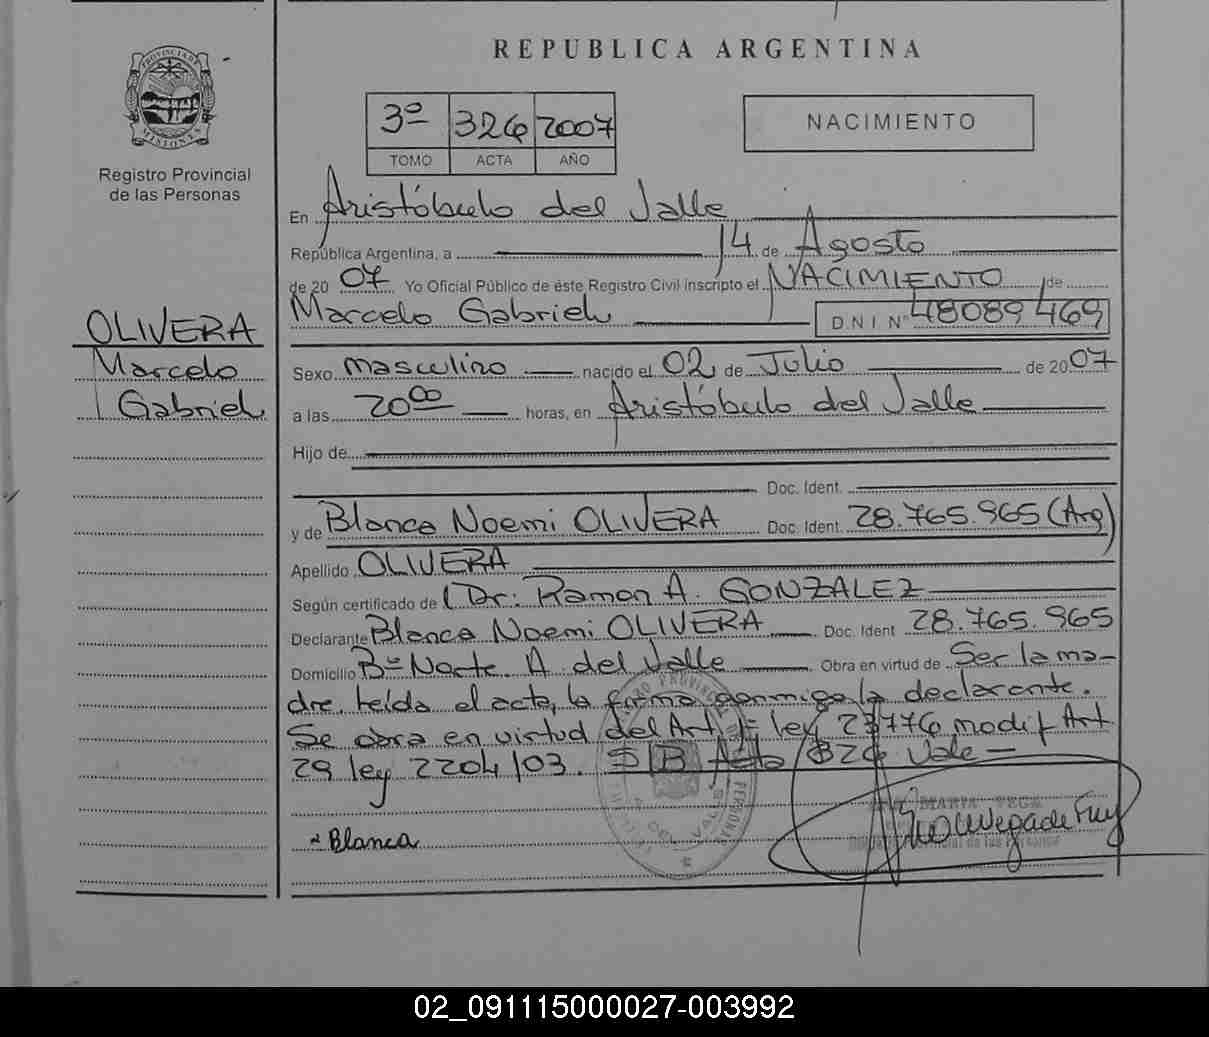 REPUBLICA ARGENTINA
PROVINCIA DE
MISIONES
Registro Provincial
de las Personas
3º 326 2007
TOMO ACTA AÑO
NACIMIENTO
En Aristóbulo del Valle
República Argentina, a 14 de Agosto
de 20 07 Yo Oficial Público de éste Registro Civil inscripto el NACIMIENTO de
Marcelo Gabriel DNI Nº 48089469
OLIVERA
Marcelo
Gabriel
Sexo masculino nacido el 02 de Julio de 2007
a las 20 00 horas, en Aristóbulo del Valle
Hijo de
Doc. Ident.
y de Blanca Noemi OLIVERA Doc. Ident. 28.765.965 (Arg)
Apellido OLIVERA
Según certificado de Dr. Ramon A. GONZALEZ
Declarante Blanca Noemi OLIVERA Doc. Ident 28.765.965
Domicilio Bº Norte. A. del Valle Obra en virtud de Ser la ma-
dre. Leída el acta, la firma conmigo la declarante.
Se obra en virtud del Art 1º ley 23776 modif Art
29 ley 2204/03. Acta 326 Vale
Blanca
MARIA VEGA
02_091115000027-003992